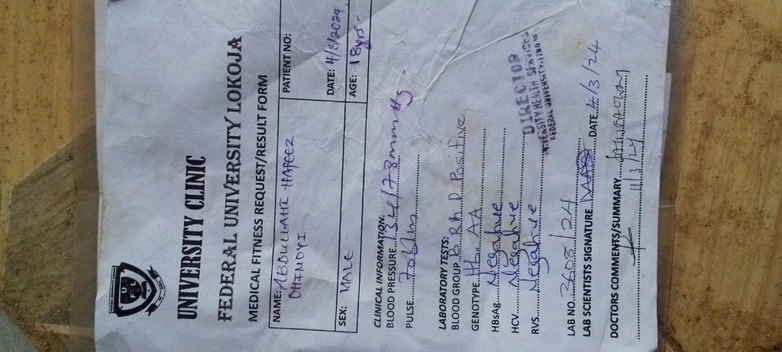 UNIVERSITY CLINIC
FEDERAL UNIVERSITY LOKOJA
MEDICAL FITNESS REQUEST/RESULT FORM
NAME: ABDULLAHI HAFEEZ PATIENT NO:
OHENOYI
DATE: 4/3/2024
SEX: MALE AGE: 18yrs
CLINICAL INFORMATION:
BLOOD PRESSURE 134/78mmHg
PULSE
LABORATORY TESTS:
BLOOD GROUP B Rh D Positive
GENOTYPE Hb AA
HBsAg Negative
HCV Negative
RVS Negative
DIRECTOR
UNIVERSITY HEALTH SERVICES
FEDERAL UNIVERSITY LOKOJA
LAB NO 3608/24
LAB SCIENTISTS SIGNATURE DATE 4/3/24
DOCTORS COMMENTS/SUMMARY
11/3/24